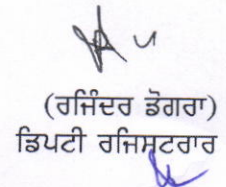 (ਰਜਿੰਦਰ ਡੋਗਰਾ)
ਡਿਪਟੀ ਰਜਿਸਟਰਾਰ